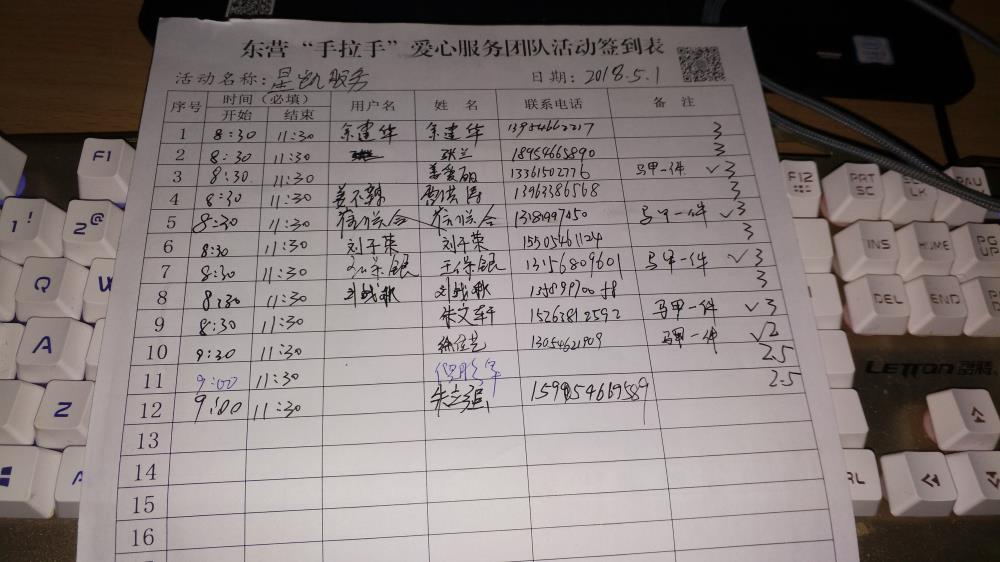 东营“手拉手”爱心服务团队活动签到表
活动名称：星凯服务 日期：2018.5.1
序号 时间（必填） 用户名 姓 名 联系电话 备 注
开始 结束
1 8:30 11:30 余建华 余建华 13954662217 3
2 8:30 11:30 张兰 18954665890 3
3 8:30 11:30 13361502776 马甲一件 √3
4 8:30 11:30 13963386568 3
5 8:30 11:30 马甲一件 √3
6 8:30 11:30 刘子荣 刘子荣 15505461124 3
7 8:30 11:30 王保银 王保银 13156809601 马甲一件 √3
8 8:30 11:30 刘战耕 刘战耕 3
9 8:30 11:30 朱文轩 15263812592 马甲一件 √3
10 9:30 11:30 13054621909 马甲一件 √2
11 9:00 11:30 2.5
12 9:00 11:30 朱立强 2.5
13
14
15
16
F1
1 !
2 @
Q
W
A
Z
A
F12
PRT SC
SCR LK
PAU
INS
HOME
PG UP
DEL
END
LETTON